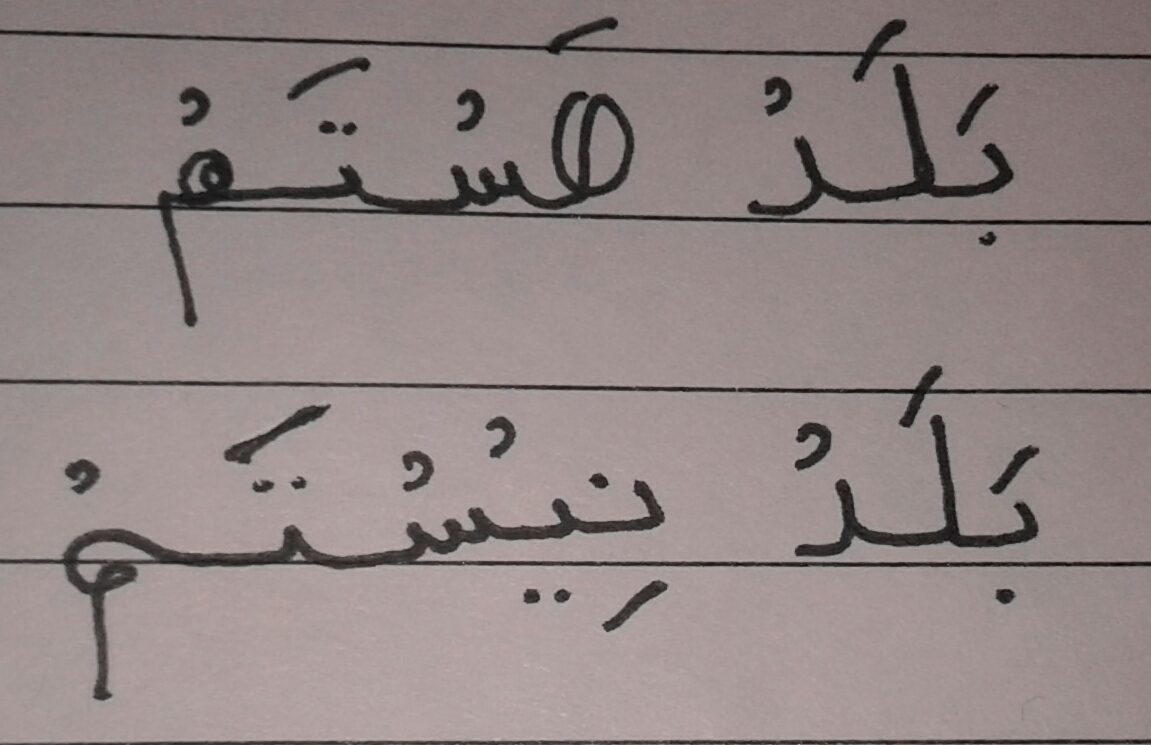 بَلَدْ هَسْتَمْ
بَلَدْ نِيْسْتَمْ